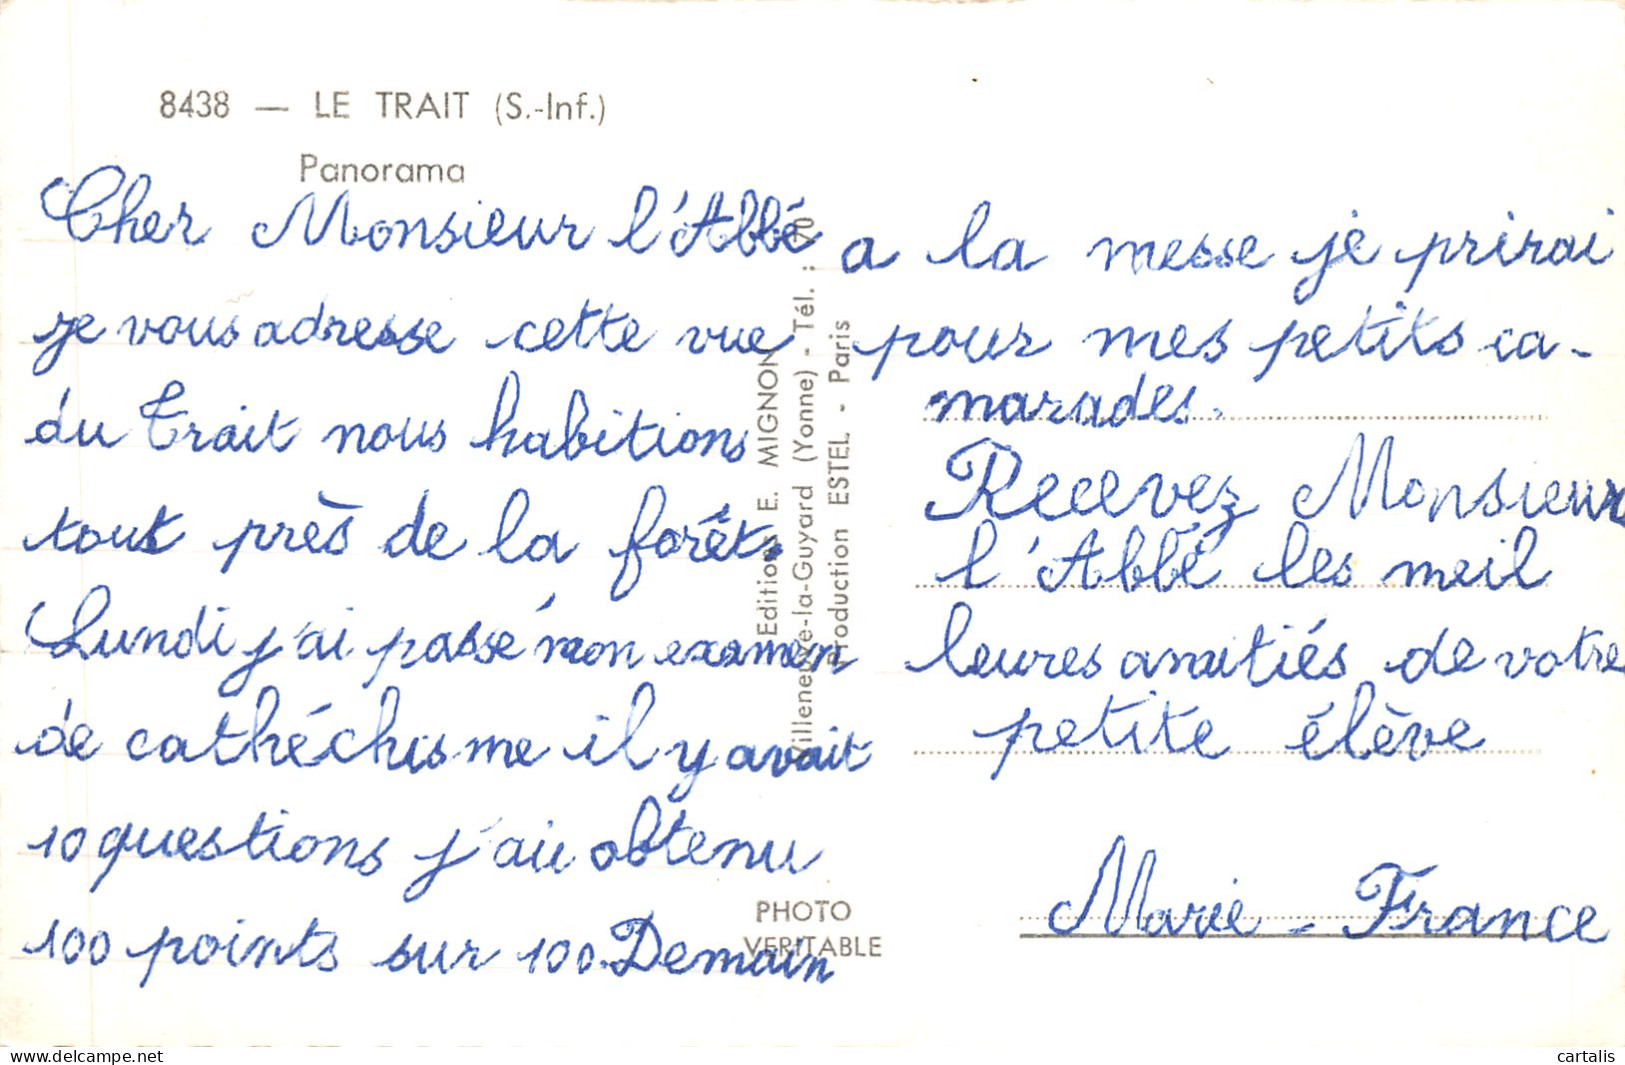 8438 — LE TRAIT (S.-Inf.)
Panorama
Cher Monsieur l'Abbé
je vous adresse cette vue
du Trait nous habitions
tout près de la forêt.
Lundi j'ai passé mon examen
de cathéchisme il y avait
10 questions j'ai obtenu
100 points sur 100. Demain
Editions E. MIGNON
Villeneuve-la-Guyard (Yonne) - Tél. : 70
Production ESTEL - Paris
PHOTO
VERITABLE
a la messe je prirai
pour mes petits ca-
marades.
Recevez Monsieur
l'Abbé les meil
leures amitiés de votre
petite élève
Marie-France
www.delcampe.net
cartalis